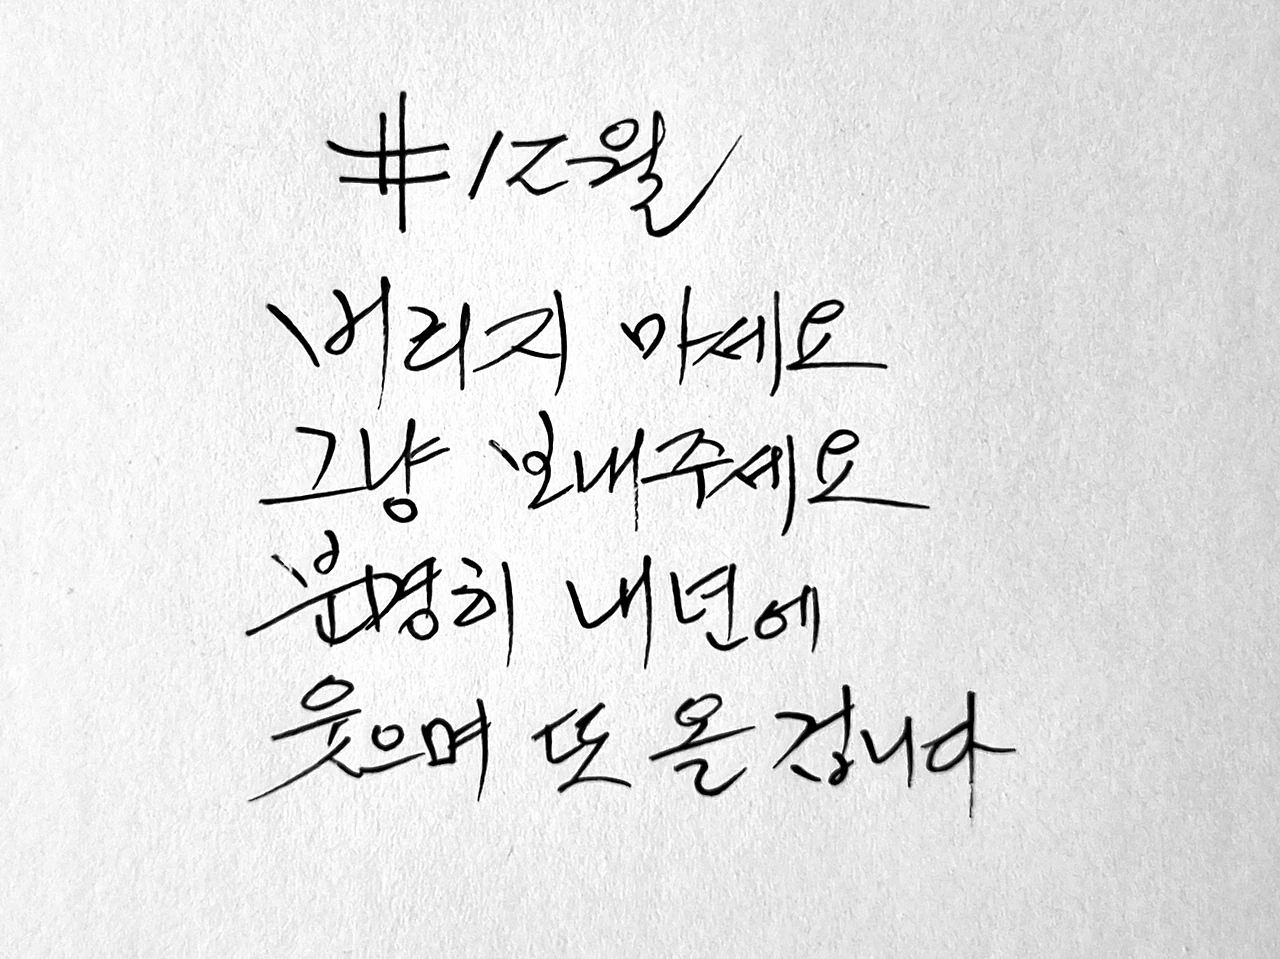 #12월
버리지 마세요
그냥 보내주세요
분명히 내년에
웃으며 또 올 겁니다